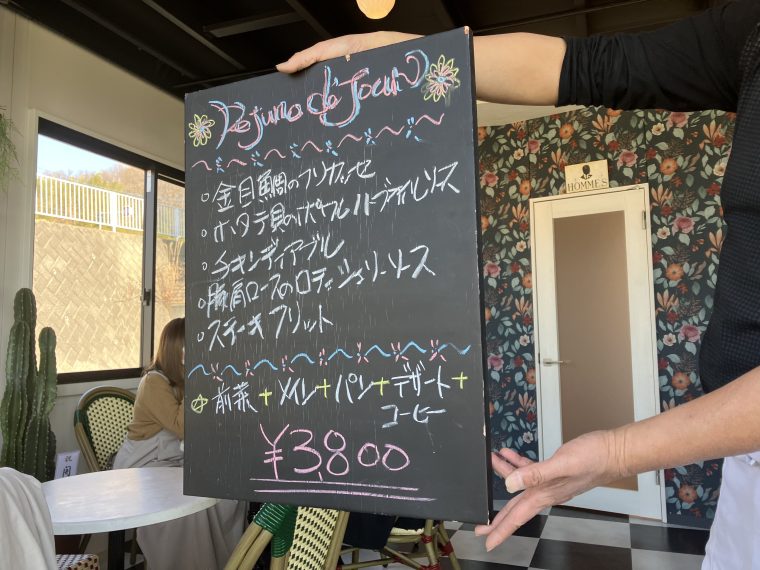 Dejuno de Jour
・金目鯛のフリカッセ
・ホタテ貝のポワレ ハーブオイルソース
・チキンディアブル
・豚肩ロースのロティ シェリーソース
・ステーキフリット
☆前菜+メイン+パン+デザート+
コーヒー
¥3,800
HOMME'S
祝